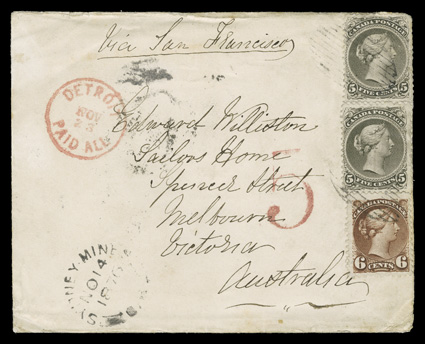 Via San Francisco
CANADA POSTAGE
5 FIVE CENTS 5
DETRO
NOV
PAID ALL
Edward Williston
Sailors Home
Spencer Street
Melbourn
Victoria
Australia
5
CANADA POSTAGE
5 FIVE CENTS 5
CANADA POSTAGE
6 CENTS 6
NEY MIN
NO 14